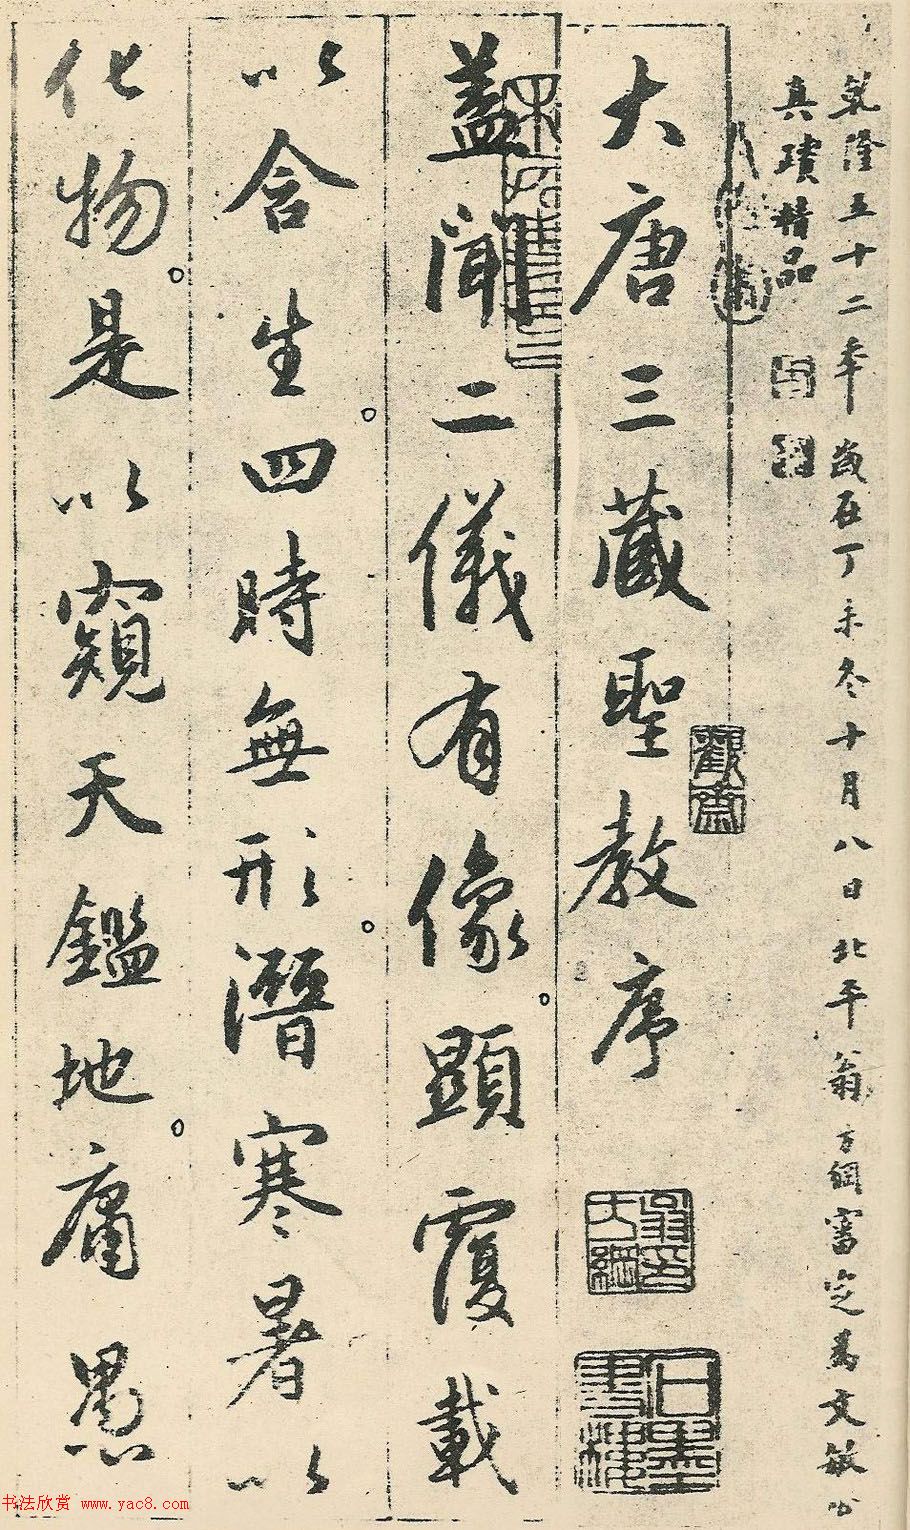 乾隆五十二年歲在丁未冬十月八日北平翁方綱審定爲文敏公
真蹟精品
大唐三藏聖教序
蓋聞二儀有像。顯覆載
以含生。四時無形。潛寒暑以
化物。是以窺天鑑地。庸愚
翁方綱
觀齋
书法欣赏 www.yac8.com